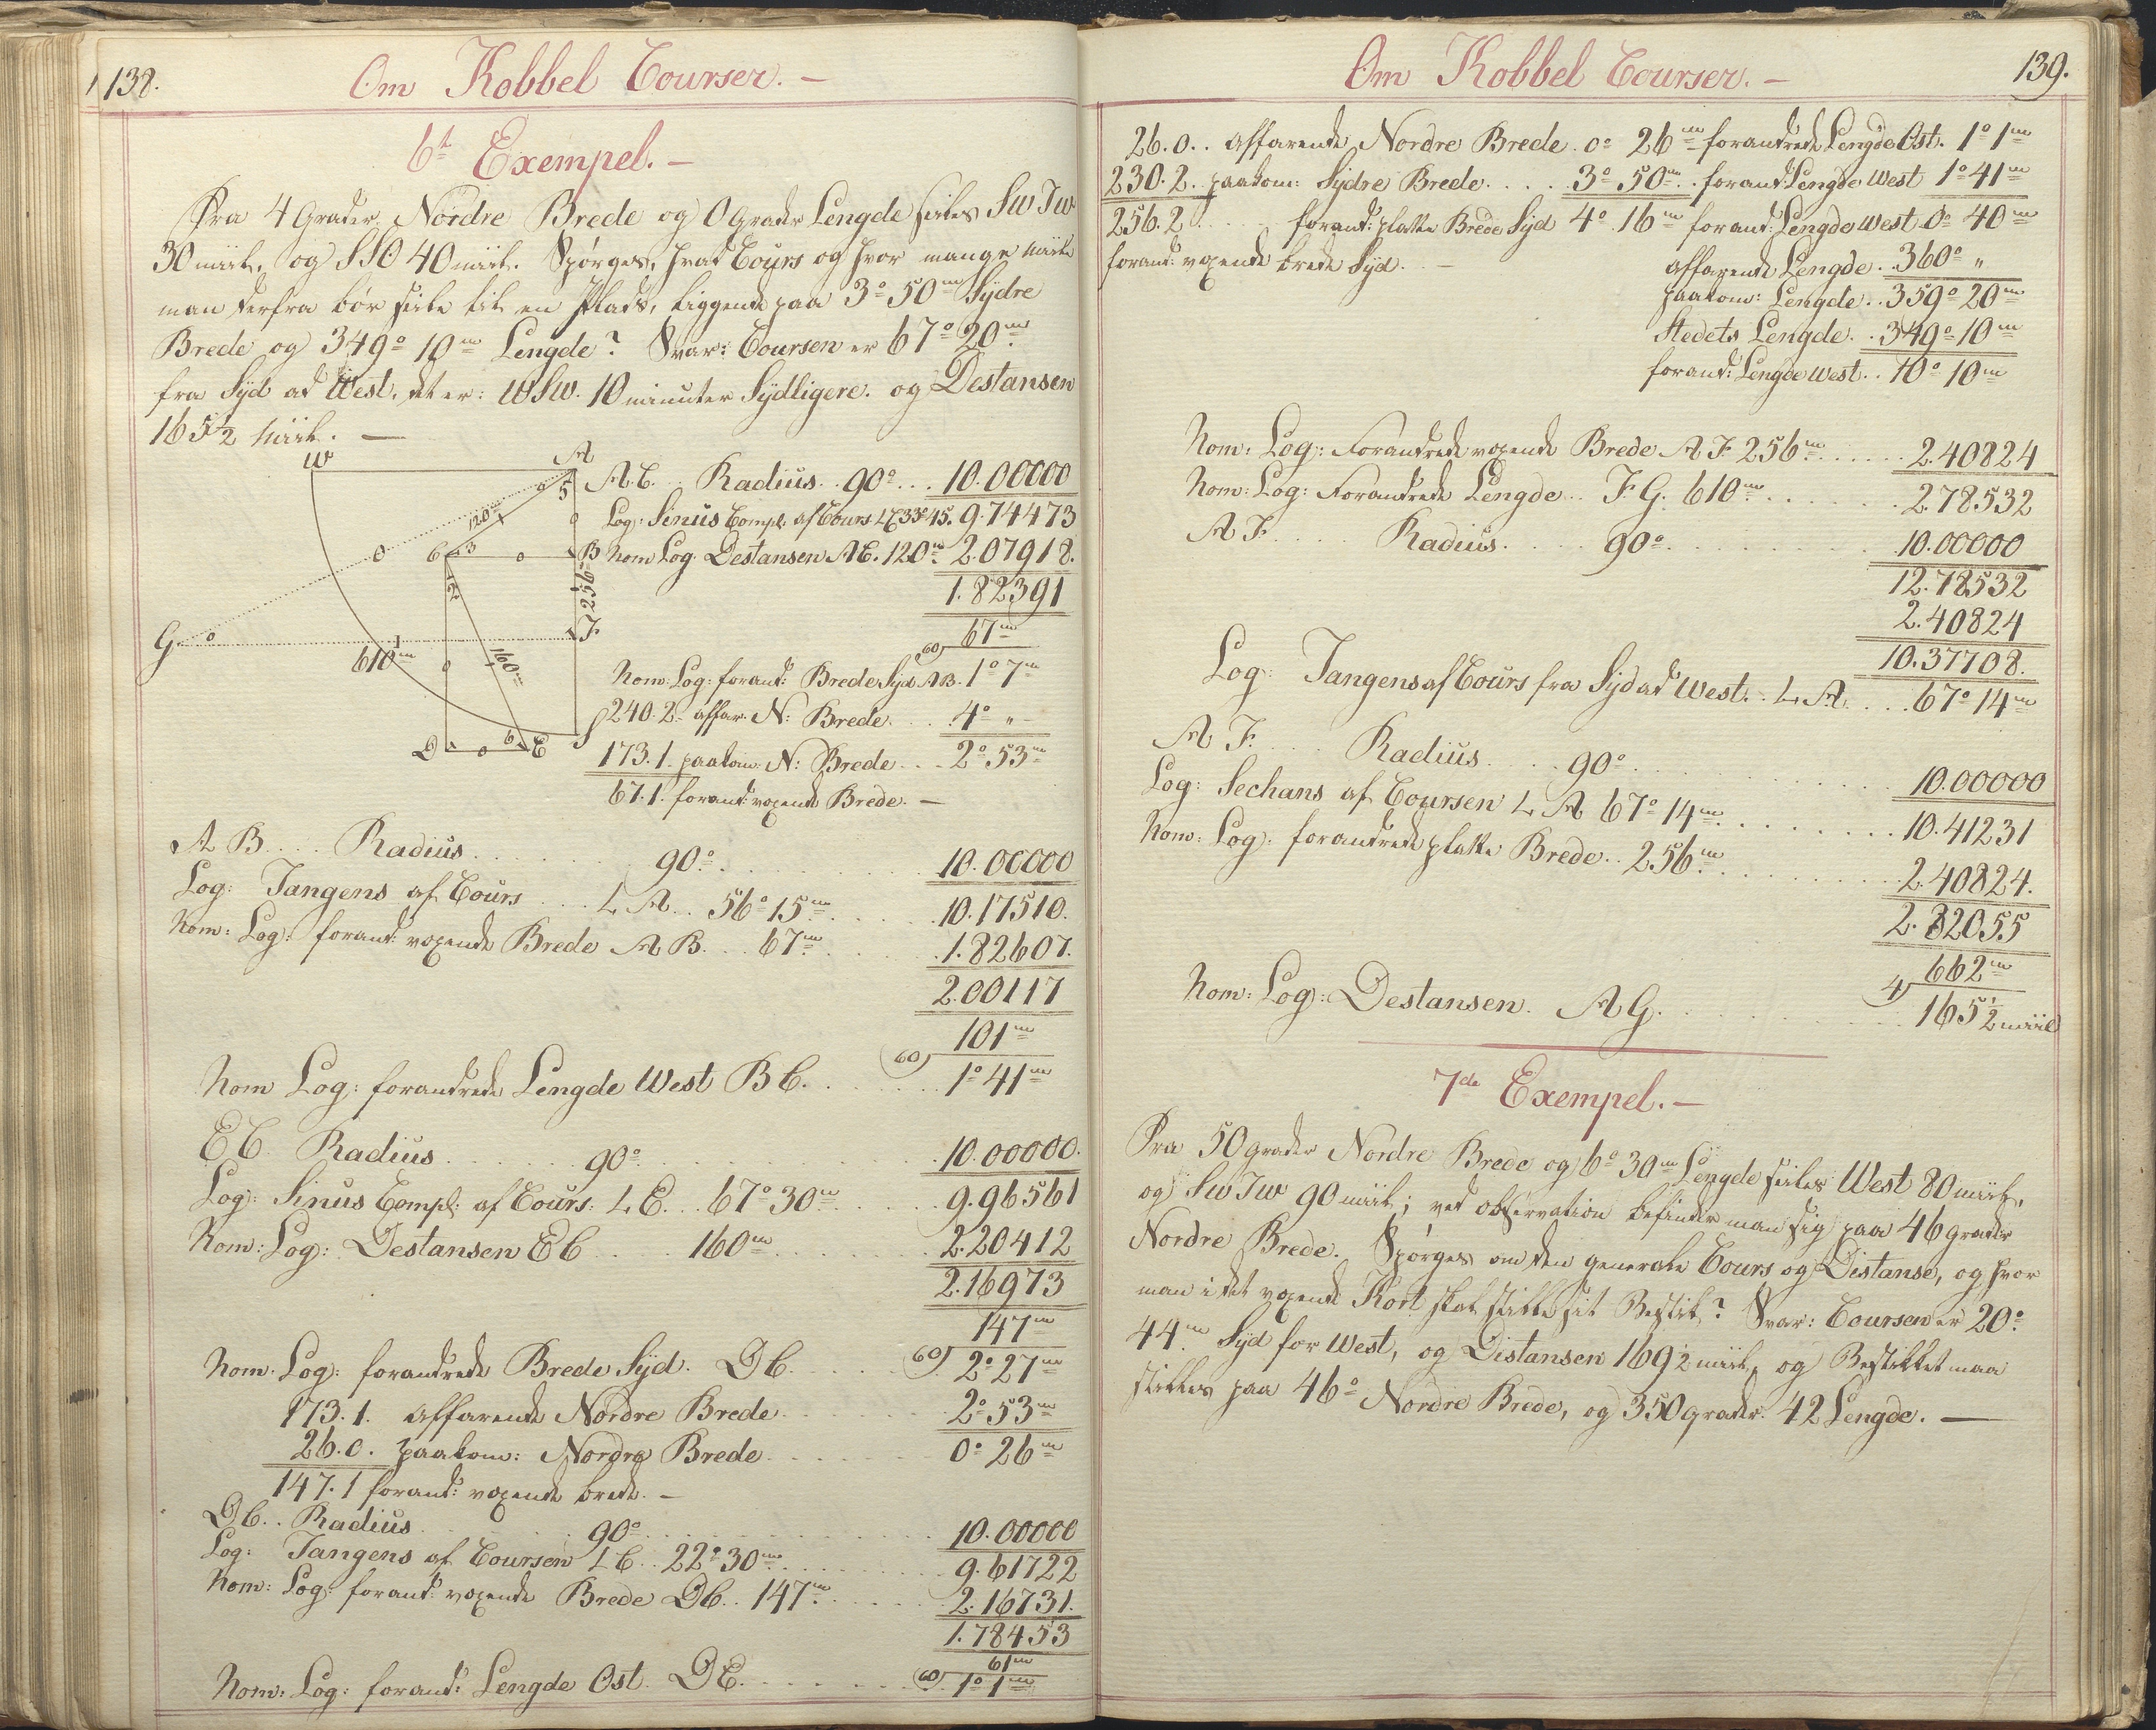 138.
Om Kobbel Courser. –
6te Exempel. –
Fra 4 Grader Nordre Brede og 0 Grader Lengde seiles SWTW
30 miil, og SSO 40 miil. Spørges, hvad Cours og hvor mange miile
man derfra bør seile til en Plads, liggende paa 3° 50m Sydre
Brede og 349° 10m Lengde? Svar: Coursen er 67° 20m
fra Syd ad West, det er: WSW. 10 minuter Sydligere. og Destansen
165½ Miil. —
W
A
5
120m
C
3
0
B
2
256
G
0
610m
1
F
160m
0
D
0
6
E
S
A.C. Radius. 90° . . . 10.00000
Log: Sinus Compl: af Cours LC 33°45. 9.74473
Nom Log. Destansen AC. 120m 2.07918.
1.82391
60) 67m
Nom: Log: forand: Brede Syd AB. 1° 7m
240.2 affar. N: Brede . . . 4° "
173.1. paakom: N: Brede . . . 2° 53m
67.1. forand: voxende Brede. –
A B . . . Radius . . . . 90° . . . . 10.00000
Log: Tangens af Cours . . . L A . . 56° 15m . . . . 10.17510.
Nom: Log: forand: voxende Brede A B . . . 67m . . . . 1.82607.
2.00117
60) 101m
Nom Log: forandrede Lengde West B C. . . . 1° 41m
E C. Radius . . . . 90° . . . . 10.00000.
Log: Sinus Compl: af Cours: L E. . . 67° 30m . . . . 9.96561
Nom: Log: Destansen E C . . . 160m . . . . 2.20412
2.16973
147m
Nom: Log: forandrede Brede Syd. D C. . . . 60) 2° 27m
173.1. affarende Nordre Brede . . . . 2° 53m
26.0. paakom: Nordre Brede . . . . 0° 26m
147.1 forand: voxende brede. –
D C. . Radius . . . . 90° . . . . 10.00000
Log: Tangens af Coursen L C. . 22° 30m . . . . 9.61722
Nom: Log: forand: voxende Brede D C. . 147m . . . . 2.16731.
1.78453
61m
Nom: Log: forand: Lengde Ost. D E. . . . 60) 1° 1m
Om Kobbel Courser. –
139.
26.0. . affarende Nordre Brede. 0° 26m forandrede Lengde Ost. 1° 1m
230.2. paakom: Sydre Brede. . . . 3° 50m. . forand: Lengde West 1° 41m
256.2. . . . . forand: platte Brede Syd 4° 16m forand: Lengde West 0° 40m
forand: voxende brede Syd. –
affarende Lengde. . 360° "
paakom: Lengde. . 359° 20m
Stedets Lengde. . 349° 10m
forand: Lengde West. . 10° 10m
Nom: Log: Forandrede voxende Brede A F. 256m . . . . 2.40824
Nom: Log: Forandrede Lengde. . F. G. 610m . . . . 2.78532
A F. . . . Radius. . . . 90° . . . . 10.00000
12.78532
2.40824
10.37708.
Log: Tangens af Cours fra Syd ad West. . L A. . . . 67° 14m
A F. . . . Radius. . . . 90° . . . . 10.00000
Log: Sechans af Coursen L A 67° 14m . . . . 10.41231
Nom: Log: forandrede platte Brede. . 256m . . . . 2.40824.
2.82055
4) 662m
Nom: Log: Destansen. A G. . . . 165½ miil
7de Exempel. –
Fra 50 grader Nordre Brede og 6° 30m Lengde seiles West 80 miil,
og SWTW 90 miil; ved observation befinder man sig paa 46 grader
Nordre Brede. Spørges om den generale Cours og Distanse, og hvor
man i det voxende Kort skal stikke sit Bestik? Svar: Coursen er 20°
44m Syd for West, og Distansen 169½ miil, og Bestikket maa
stikkes paa 46° Nordre Brede, og 350 grader. 42 Lengde. —